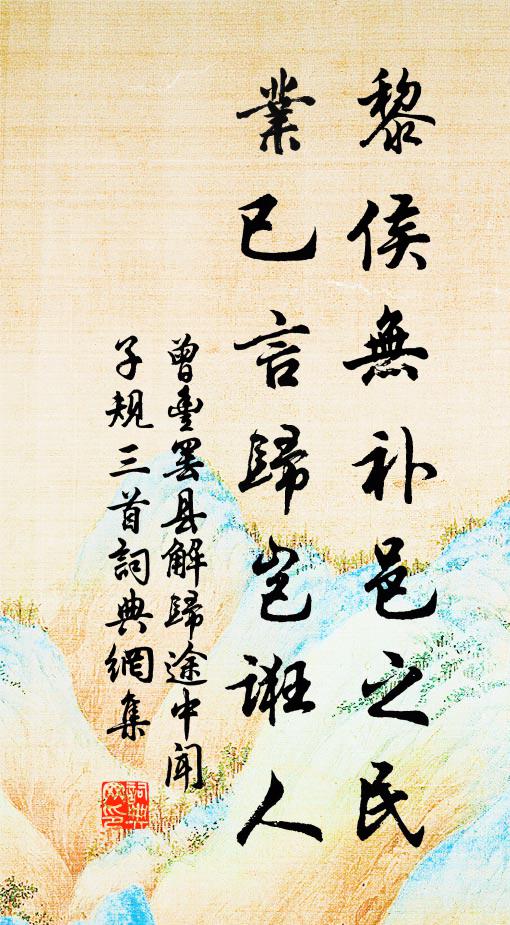 黎侯無补邑之民
業已言歸岂誑人
曾豊罢县解歸途中闻
子规三首詞典網集